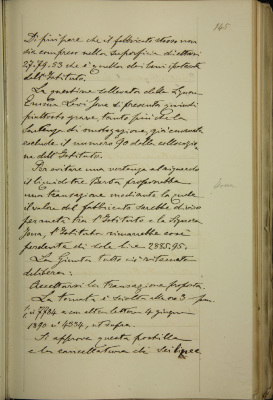 145
Di più pare che il fabbricato stesso non
sia compreso nella superficie di ettari
27.79.53 che è quella dei beni ipotecati
dell'Istituto.
La questione sollevata dalla Signora
Levi Jona si presenta quindi
piuttosto grave, tanto più che la
sentenza di aggiudicazione, già
esclude il numero 90 dalla collocazio
ne dell'Istituto.
Per evitare una vertenza al riguardo
il liquidatore proporrebbe
una transazione mediante la quale
il valore del fabbricato sarebbe diviso
per metà tra l'Istituto e la Signora
Jona, l'Istituto rimarrebbe così
perdente di sole lire 2885.95.
La Giunta tutto ciò ritenuto
delibera:
Accettarsi la transazione proposta.
La tornata è sciolta alle ore 3
n° 7784 e con altra lettera 4 giugno
1890 n° 4334,
Si approva questa postilla
e la cancellatura che